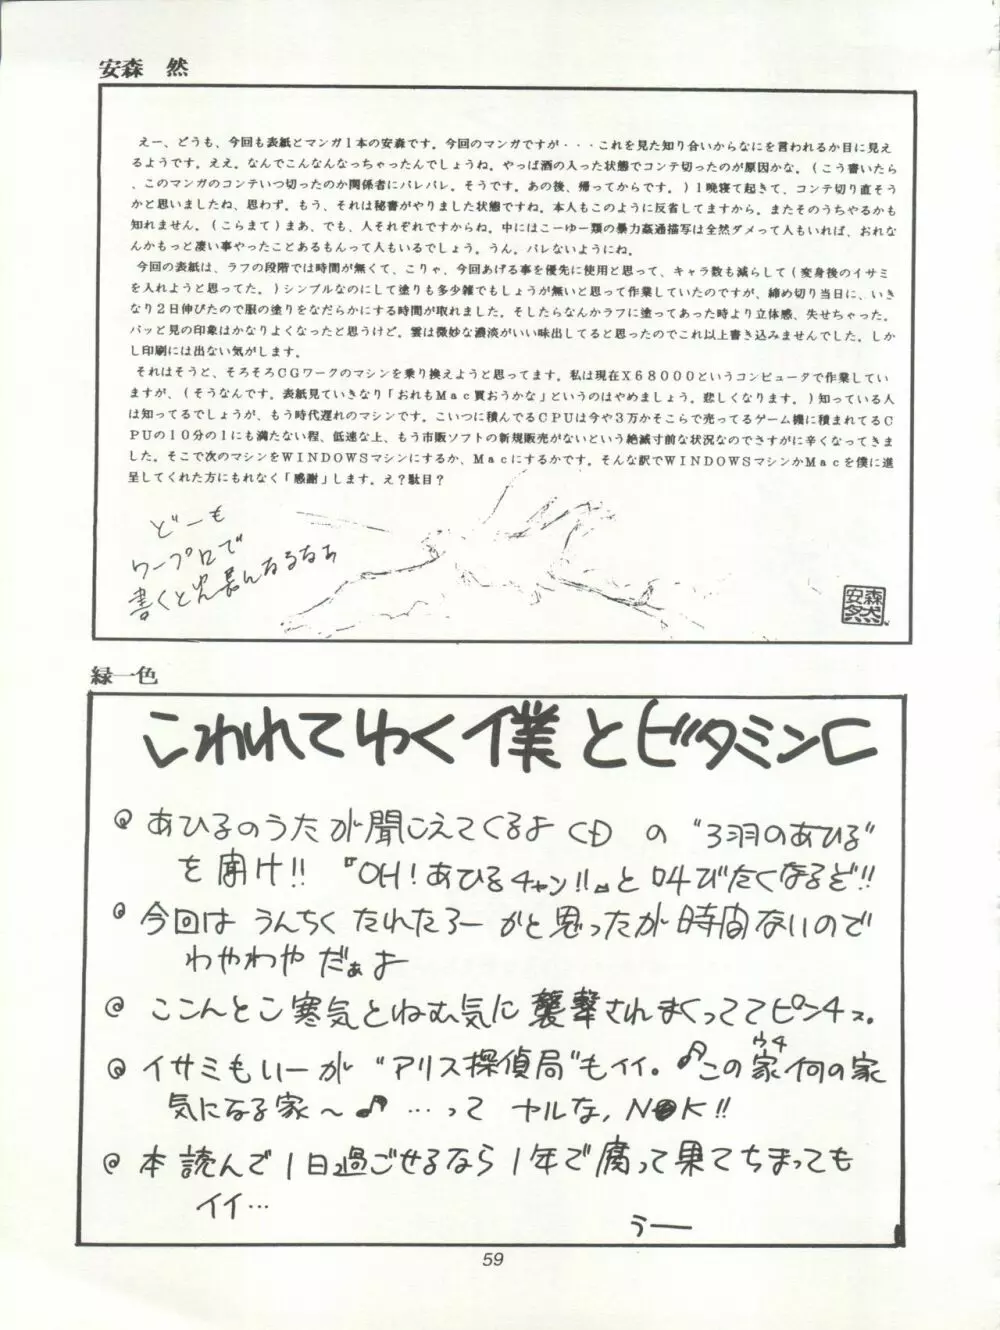 安森　然
えー、どうも、今回も表紙とマンガ１本の安森です。今回のマンガですが・・・これを見た知り合いからなにを言われるか目に見え
るようです。ええ。なんでこんなんなっちゃったんでしょうね。やっぱ酒の入った状態でコンテ切ったのが原因かな。（こう書いたら
、このマンガのコンテいつ切ったのか関係者にバレバレ。そうです。あの後、帰ってからです。）１晩寝て起きて、コンテ切り直そう
かと思いましたね、思わず。もう、それは秘書がやりました状態ですね。本人もこのように反省してますから。またそのうちやるかも
知れません。（こらまて）まあ、でも、人それぞれですからね。中にはこーゆー類の暴力姦通描写は全然ダメって人もいれば、おれな
んかもっと凄い事やったことあるもんって人もいるでしょう。うん。バレないようにね。
今回の表紙は、ラフの段階では時間が無くて、こりゃ、今回あげる事を優先に使用と思って、キャラ数も減らして（変身後のイサミ
を入れようと思ってた。）シンプルなのにして塗りも多少雑でもしょうが無いと思って作業していたのですが、締め切り当日に、いき
なり２日伸びたので服の塗りをなだらかにする時間が取れました。そしたらなんかラフに塗ってあった時より立体感、失せちゃった。
パッと見の印象はかなりよくなったと思うけど。雲は微妙な濃淡がいい味出してると思ったのでこれ以上書き込みませんでした。しか
し印刷には出ない気がします。
それはそうと、そろそろＣＧワークのマシンを乗り換えようと思ってます。私は現在Ｘ６８０００というコンピュータで作業してい
ますが、（そうなんです。表紙見ていきなり「おれもＭａｃ買おうかな」というのはやめましょう。悲しくなります。）知っている人
は知ってるでしょうが、もう時代遅れのマシンです。こいつに積んでるＣＰＵは今や３万かそこらで売ってるゲーム機に積まれてるＣ
ＰＵの１０分の１にも満たない程、低速な上、もう市販ソフトの新規販売がないという絶滅寸前な状況なのでさすがに辛くなってきま
した。そこで次のマシンをＷＩＮＤＯＷＳマシンにするか、Ｍａｃにするかです。そんな訳でＷＩＮＤＯＷＳマシンかＭａｃを僕に進
呈してくれた方にもれなく「感謝」します。え？駄目？
どーも
ワープロで
書くと文長くなるなぁ
安森然
緑一色
こわれてゆく僕とビタミンC
@ あひるのうたが聞こえてくるよ CD の "3羽のあひる"
を聞け!! 『OH! あひるチャン!!』と叫びたくなるぞ!!
@ 今回は うんちく たれたろー かと思ったが時間ないので
わやわや だぁよ
@ ここんとこ寒気とねむ気に襲撃されまくっててピンチっス。
@ イサミもいーが "アリス探偵局"もイイ。♪この家ウチ何の家
気になる家〜♪ …って ヤルな, N●K!!
@ 本読んで1日過ごせるなら1年で腐って果てちまっても
イイ…
うー
59